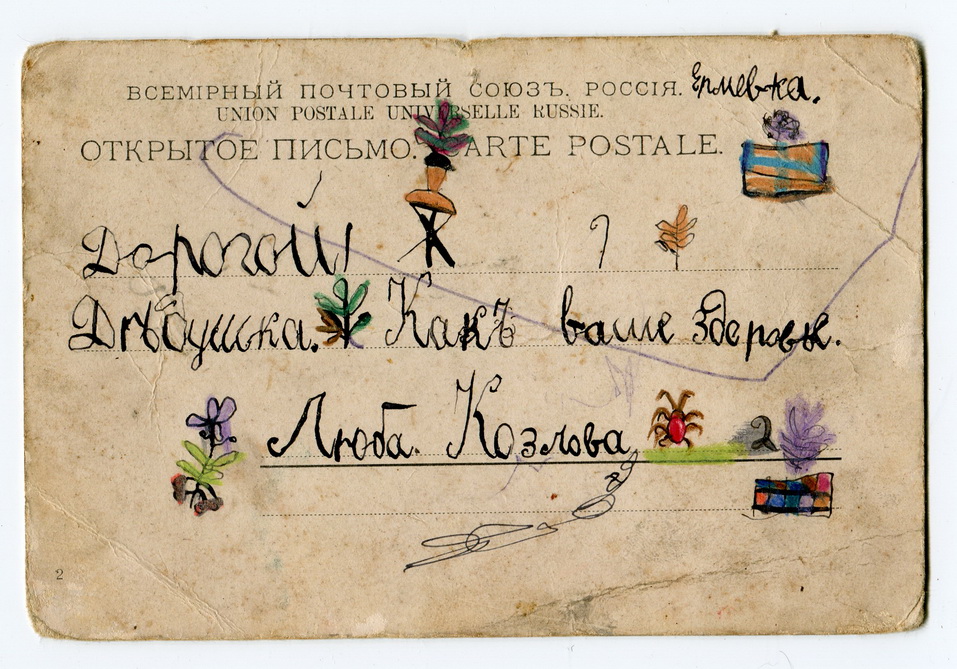 ВСЕМІРНЫЙ ПОЧТОВЫЙ СОЮЗЪ. РОССІЯ.
UNION POSTALE UNIVERSELLE RUSSIE.
ОТКРЫТОЕ ПИСЬМО. CARTE POSTALE.
Дорогой
Дѣдушка. Какъ ваше Здеровье.
Люба. Козлова
2
2